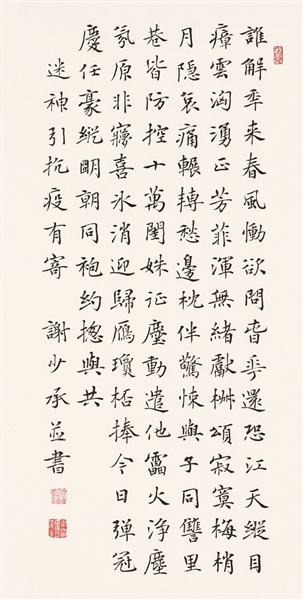 誰解秊来春風慟欲問杏華還恐江天縱目
瘴雲洶湧正芳菲渾無緒獻椒頌寂寞梅梢
月隱哀痛輾轉愁邊枕伴驚悚與子同讐里
巷皆防控十萬閨姝征塵動遣他靁火淨塵
氛原非寱喜冰消迎歸鴈瓊桮捧今日彈冠
慶任豪縱明朝同袍約摠與共
迷神引抗疫有寄 謝少承並書